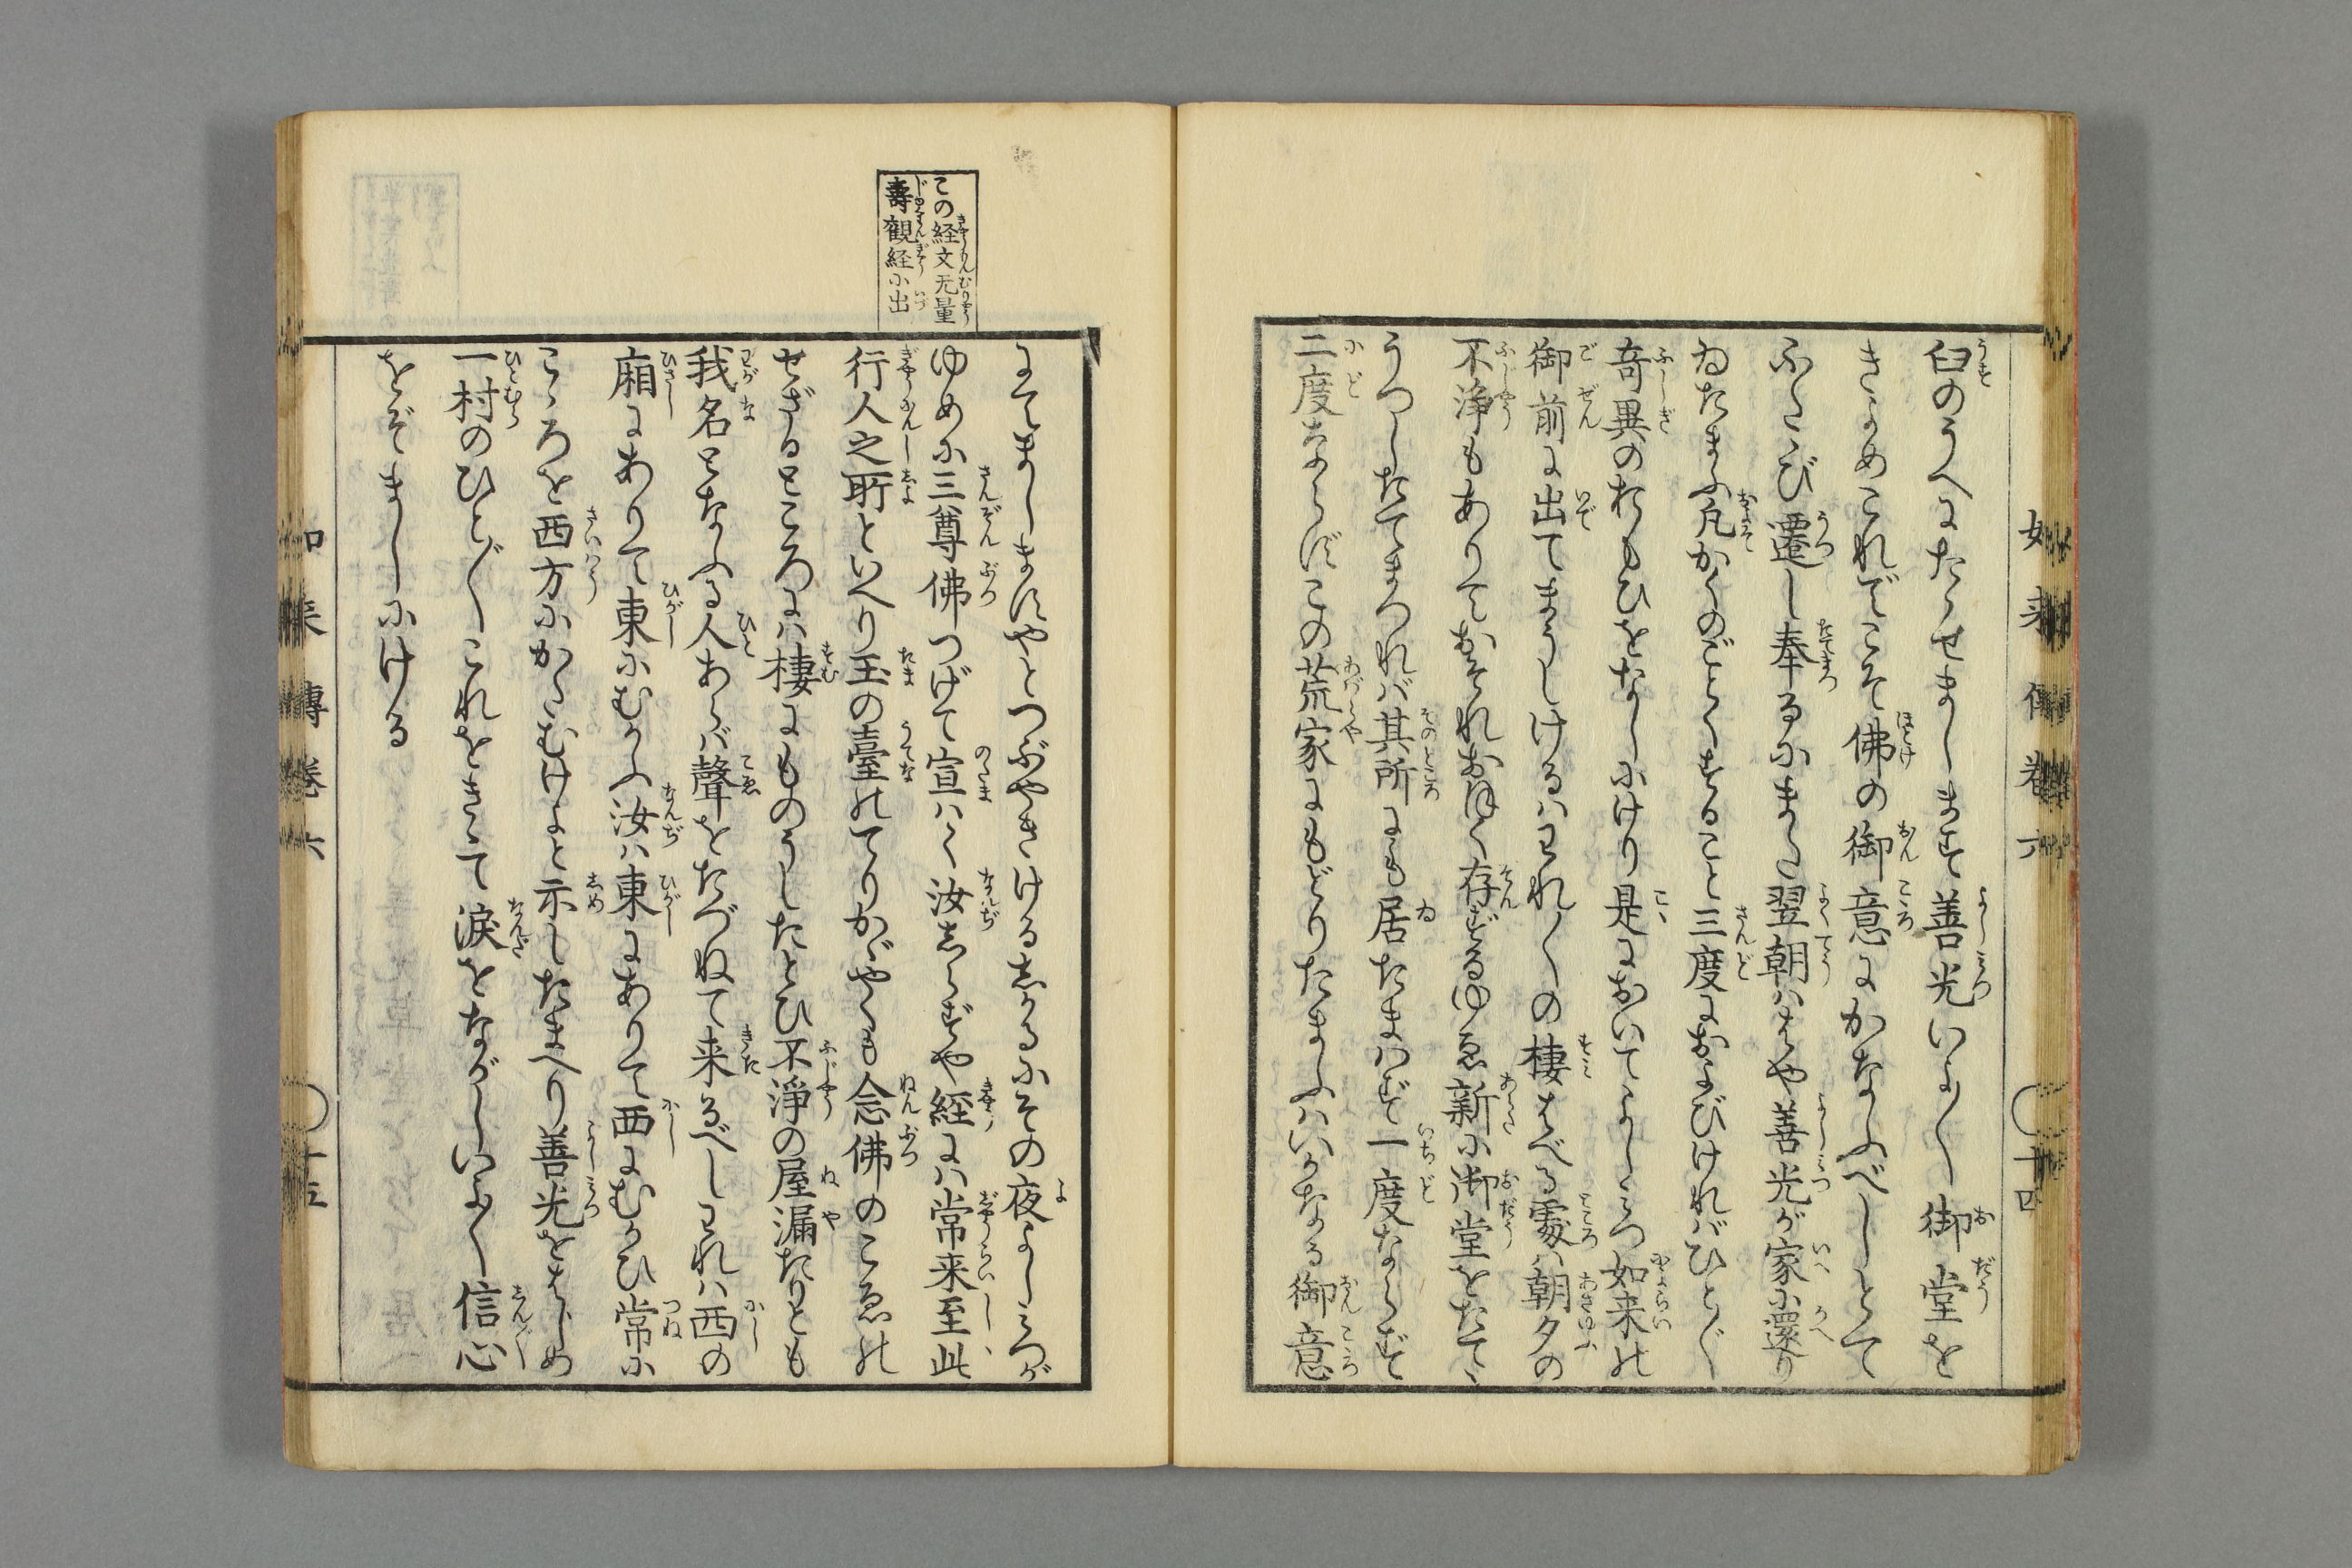 臼のうへにたゝせまします善光いよ〳〵御堂を
きよめこれでこそ佛の御意にかなふべしとて
ふたゝび遷し奉るにまた翌朝ハはや善光が家に還り
ゐたまふ凡かくのごとくすること三度におよびけれバひと〴〵
奇異のおもひをなしにけり是においてよしみつ如来の
御前に出てまうしけるハわれ〳〵の棲はべる處ハ朝夕の
不浄もありておそれおほく存ずるゆゑ新に御堂をたてゝ
うつしたてまつれバ其所にも居たまハず一度ならず
二度ならずこの荒家にもどりたまふハいかなる御意
にてましますやとつぶやきけるしかるにその夜よしみつが
ゆめに三尊佛つげて宣ハく汝しらずや経にハ常来至此
行人之所といへり玉の臺のてりかゞやくも念佛のこゑの
せざるところにハ棲にものうしたとひ不淨の屋漏たりとも
我名をとなふる人あらバ聲をたづねて来るべしわれハ西の
廂にありて東にむかふ汝ハ東にありて西にむかひ常に
こゝろを西方にかたむけよと示したまへり善光をはじめ
一村のひと〴〵これをきゝて涙をながしいよ〳〵信心
をぞましにける
この経文无量
壽観経に出
如来傳巻六
十四
如来傳巻六
十五